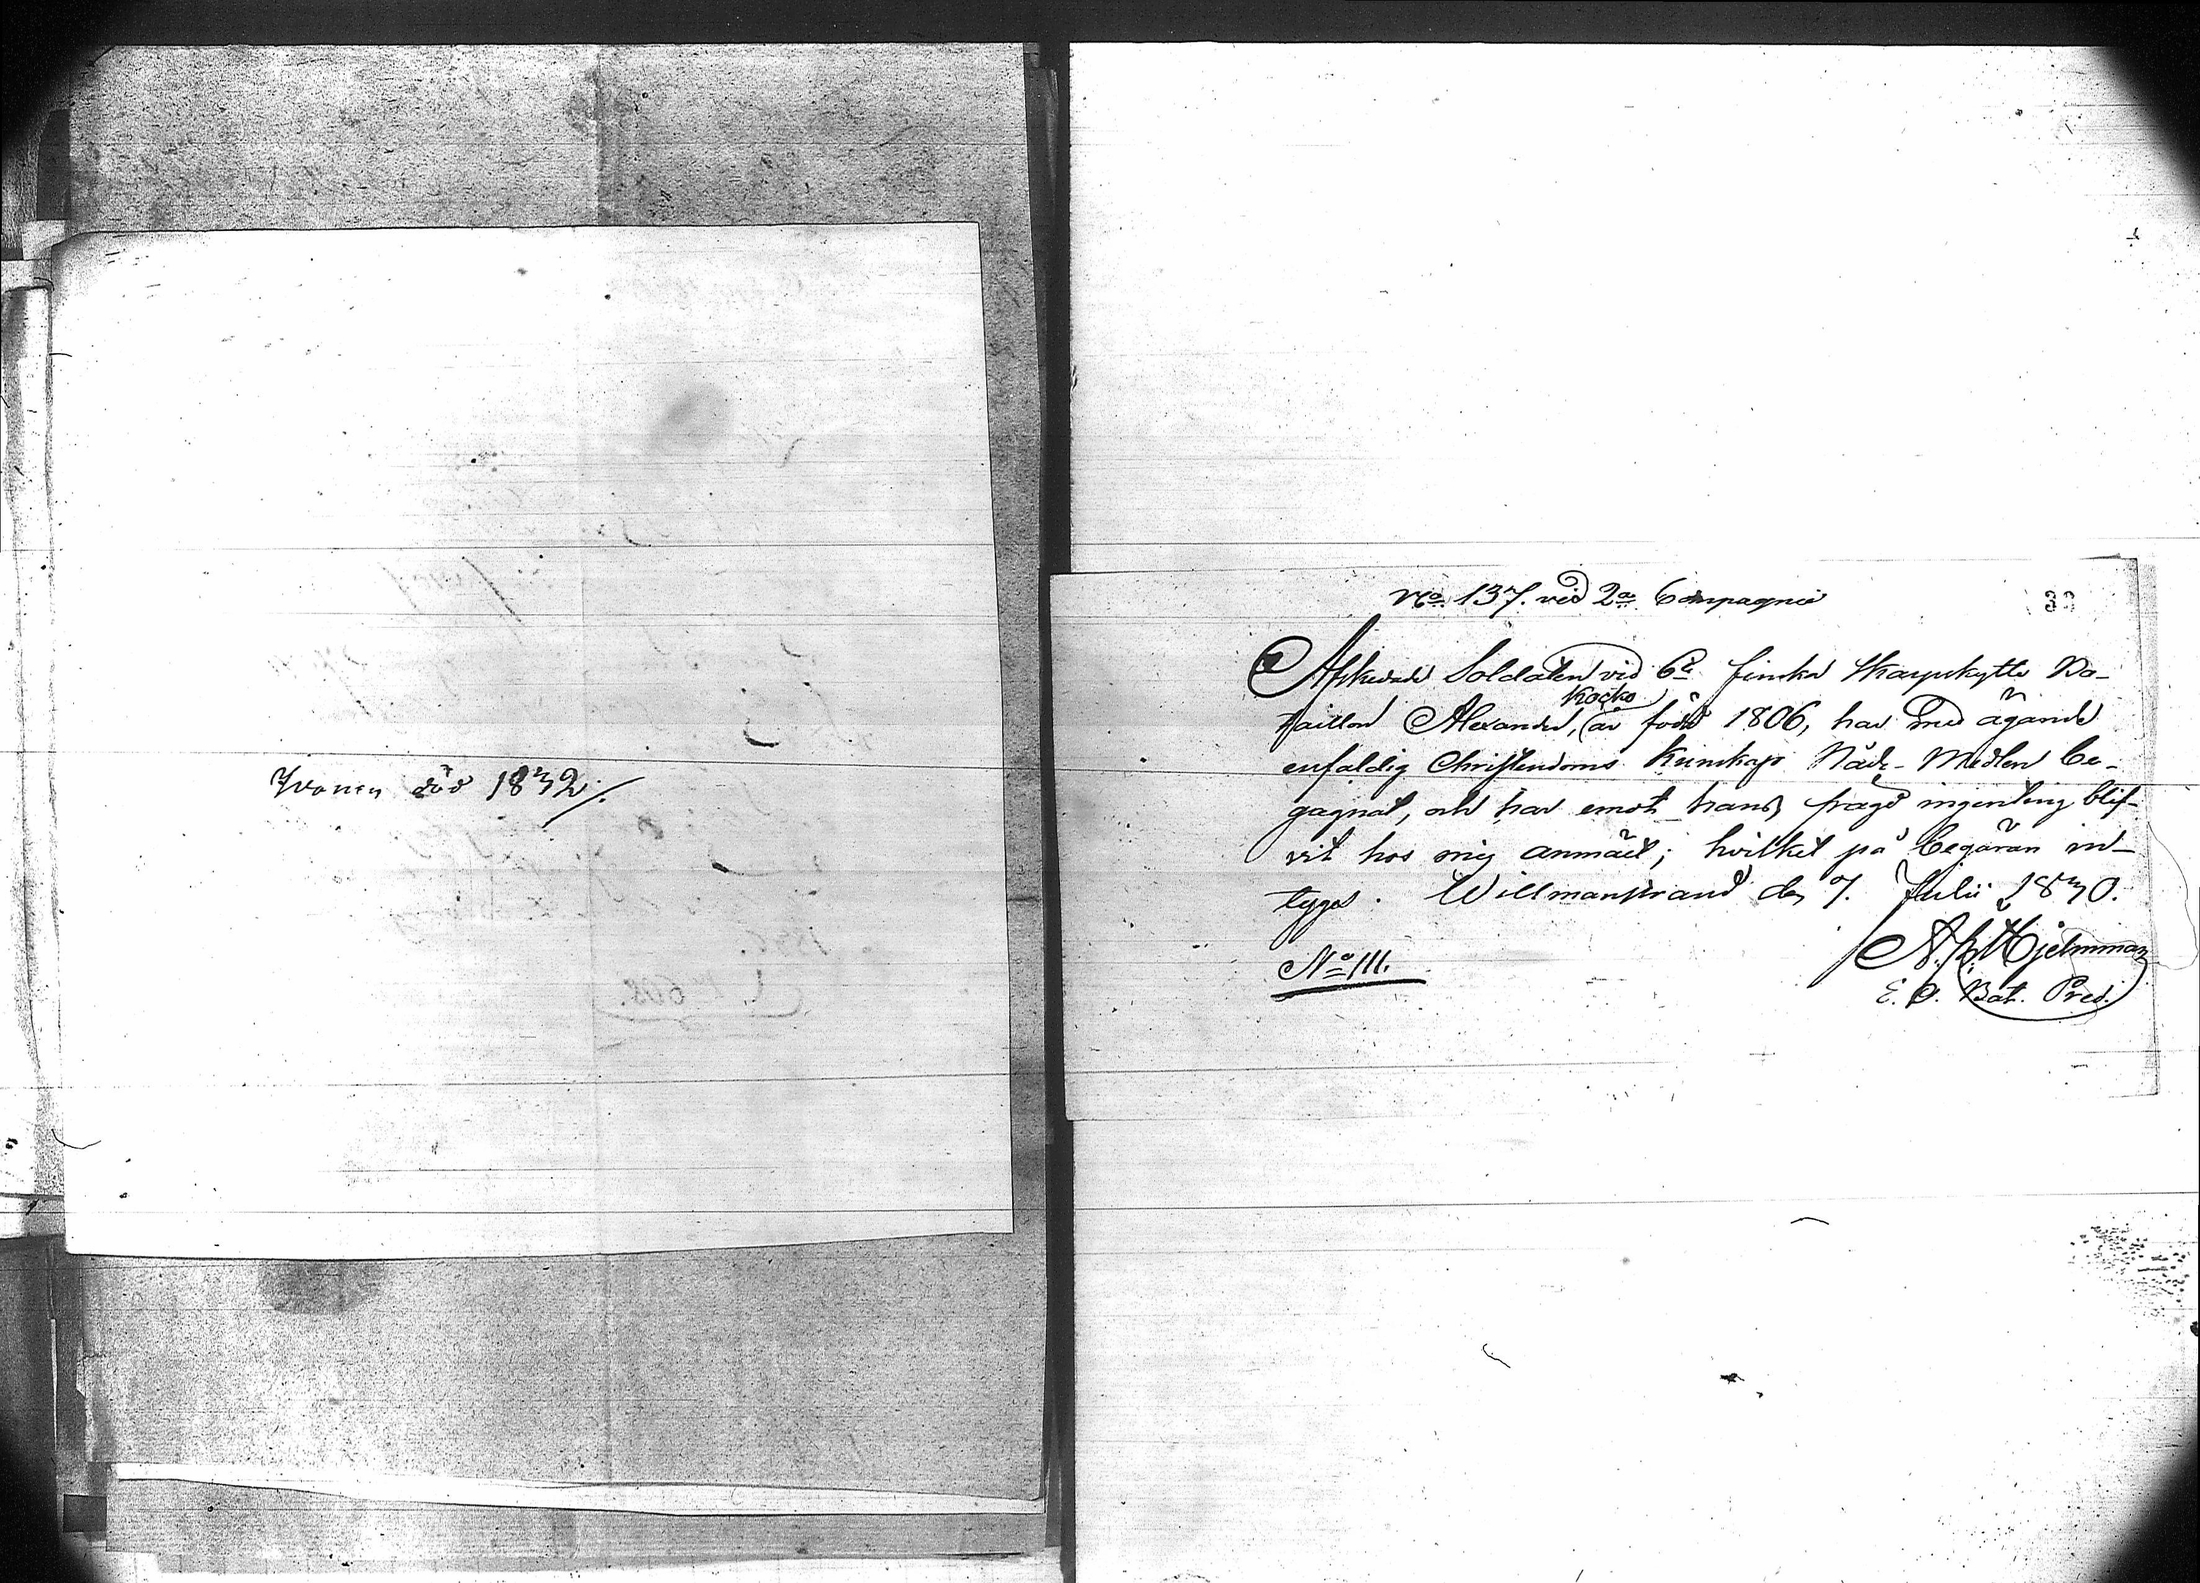 Ivanen död 1832.
No. 137. vid 2a Compagnie
33
Afskedade Soldaten vid 6e finska Skarpskytte Ba-
taillon Alexander Kocko, är född 1806, har med ägande
enfaldig Christendoms Kunskap Nåde-Medlen be-
gagnat, och har emot hans frägd ingenting blif-
vit hos mig anmält; hvilket på begäran in-
tygas. Willmanstrand den 7. Julii 1830.
No 111.
Hjelmman
E. O. Bat. Pred.